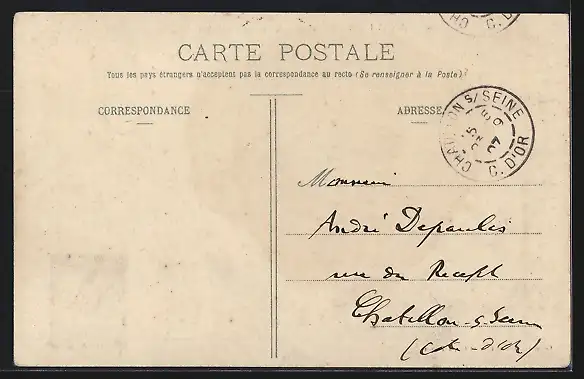 CARTE POSTALE
Tous les pays étrangers n'acceptent pas la correspondance au recto (Se renseigner à la Poste)
CORRESPONDANCE
ADRESSE
CHATILLON S/ SEINE
C. D'OR
Monsieur
André Depaulis
rue du Recept
Chatillon-s-Seine
(Côte-d'Or)